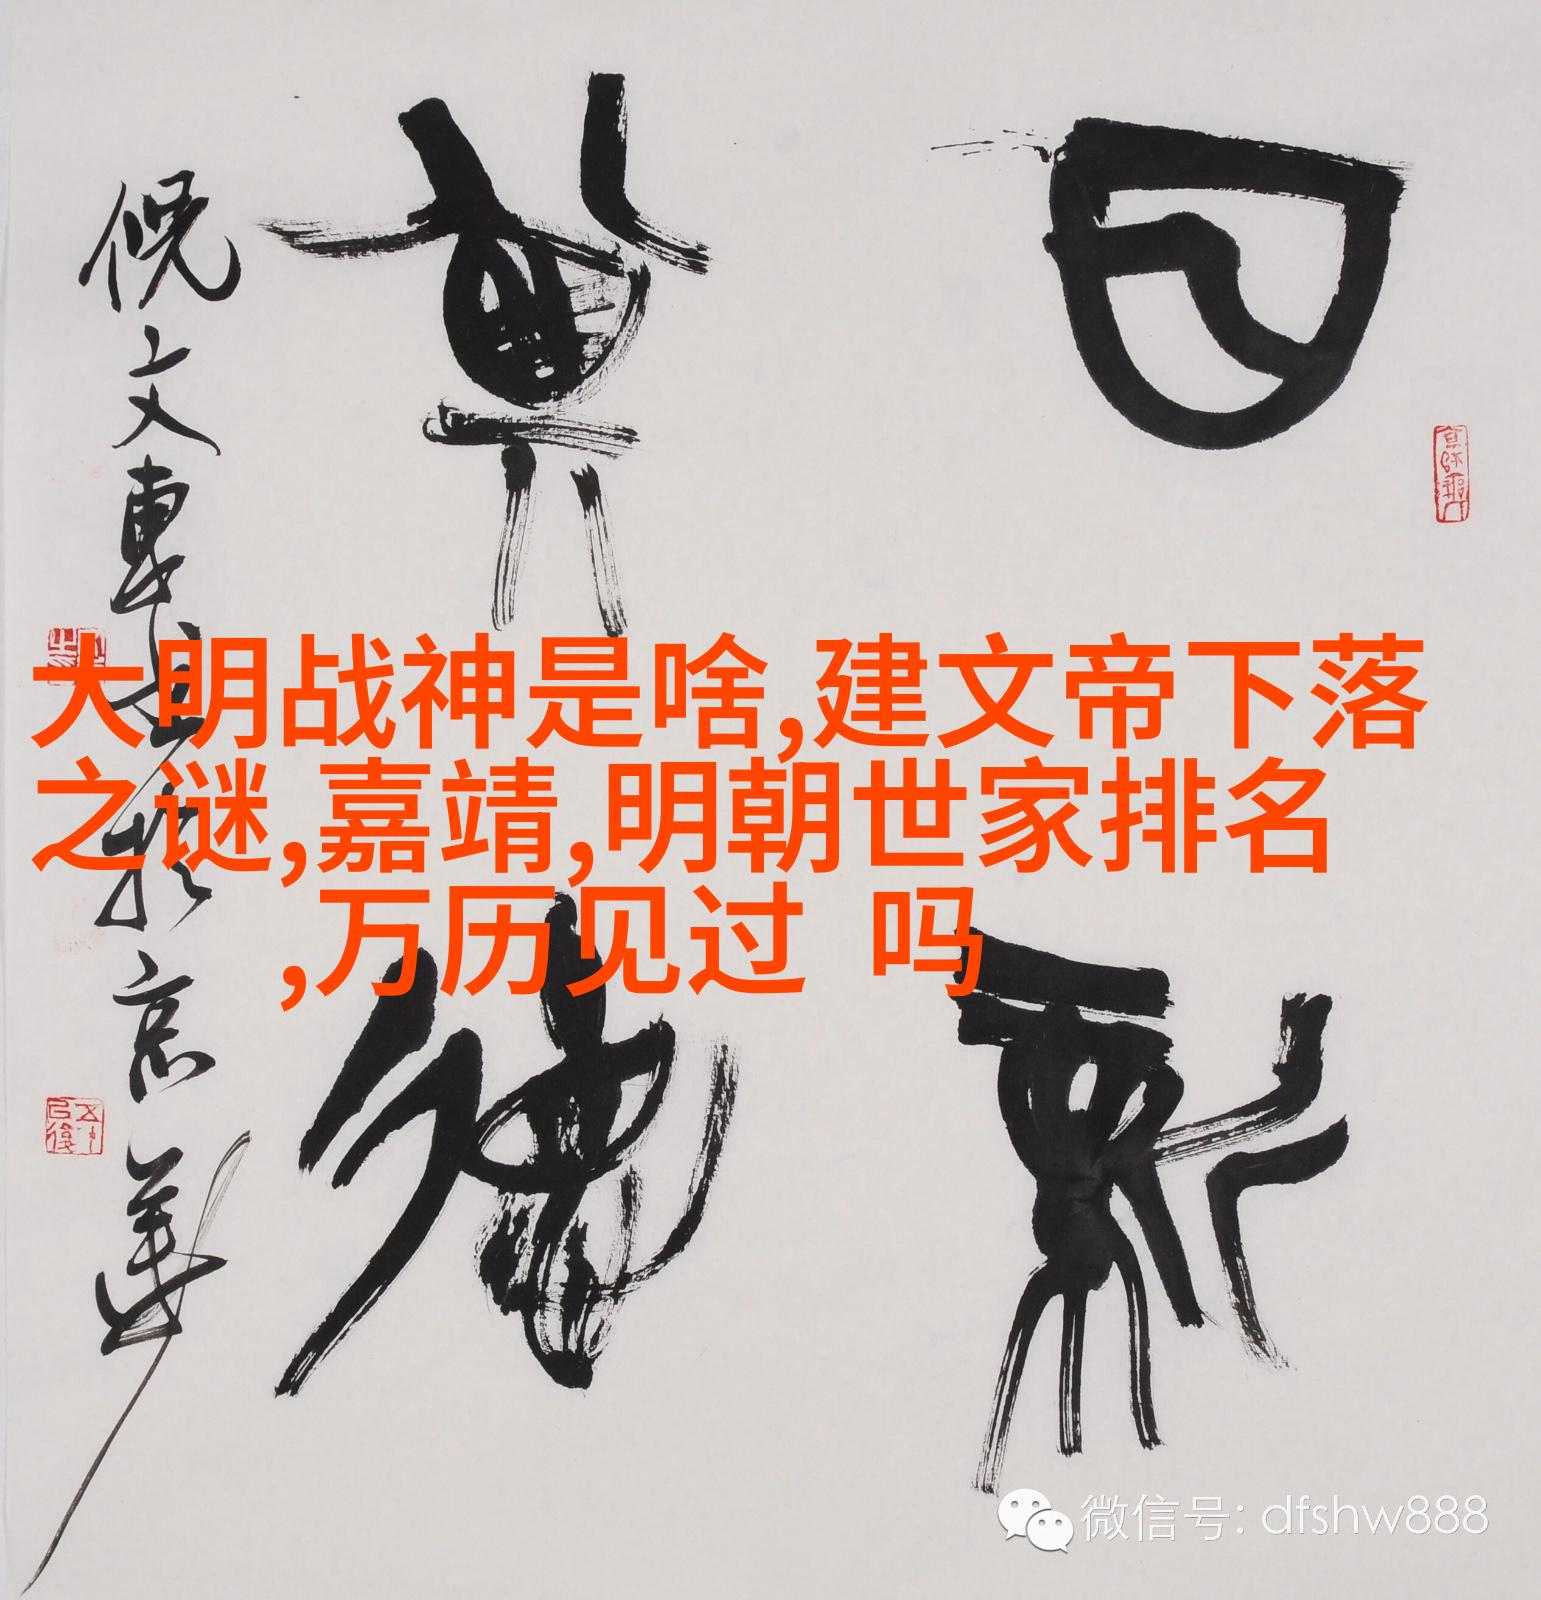 日新
其德
倪文東书於京華
大明战神是啥,建文帝下落
之谜,嘉靖,明朝世家排名
,万历见过 吗
微信号: dfshw888